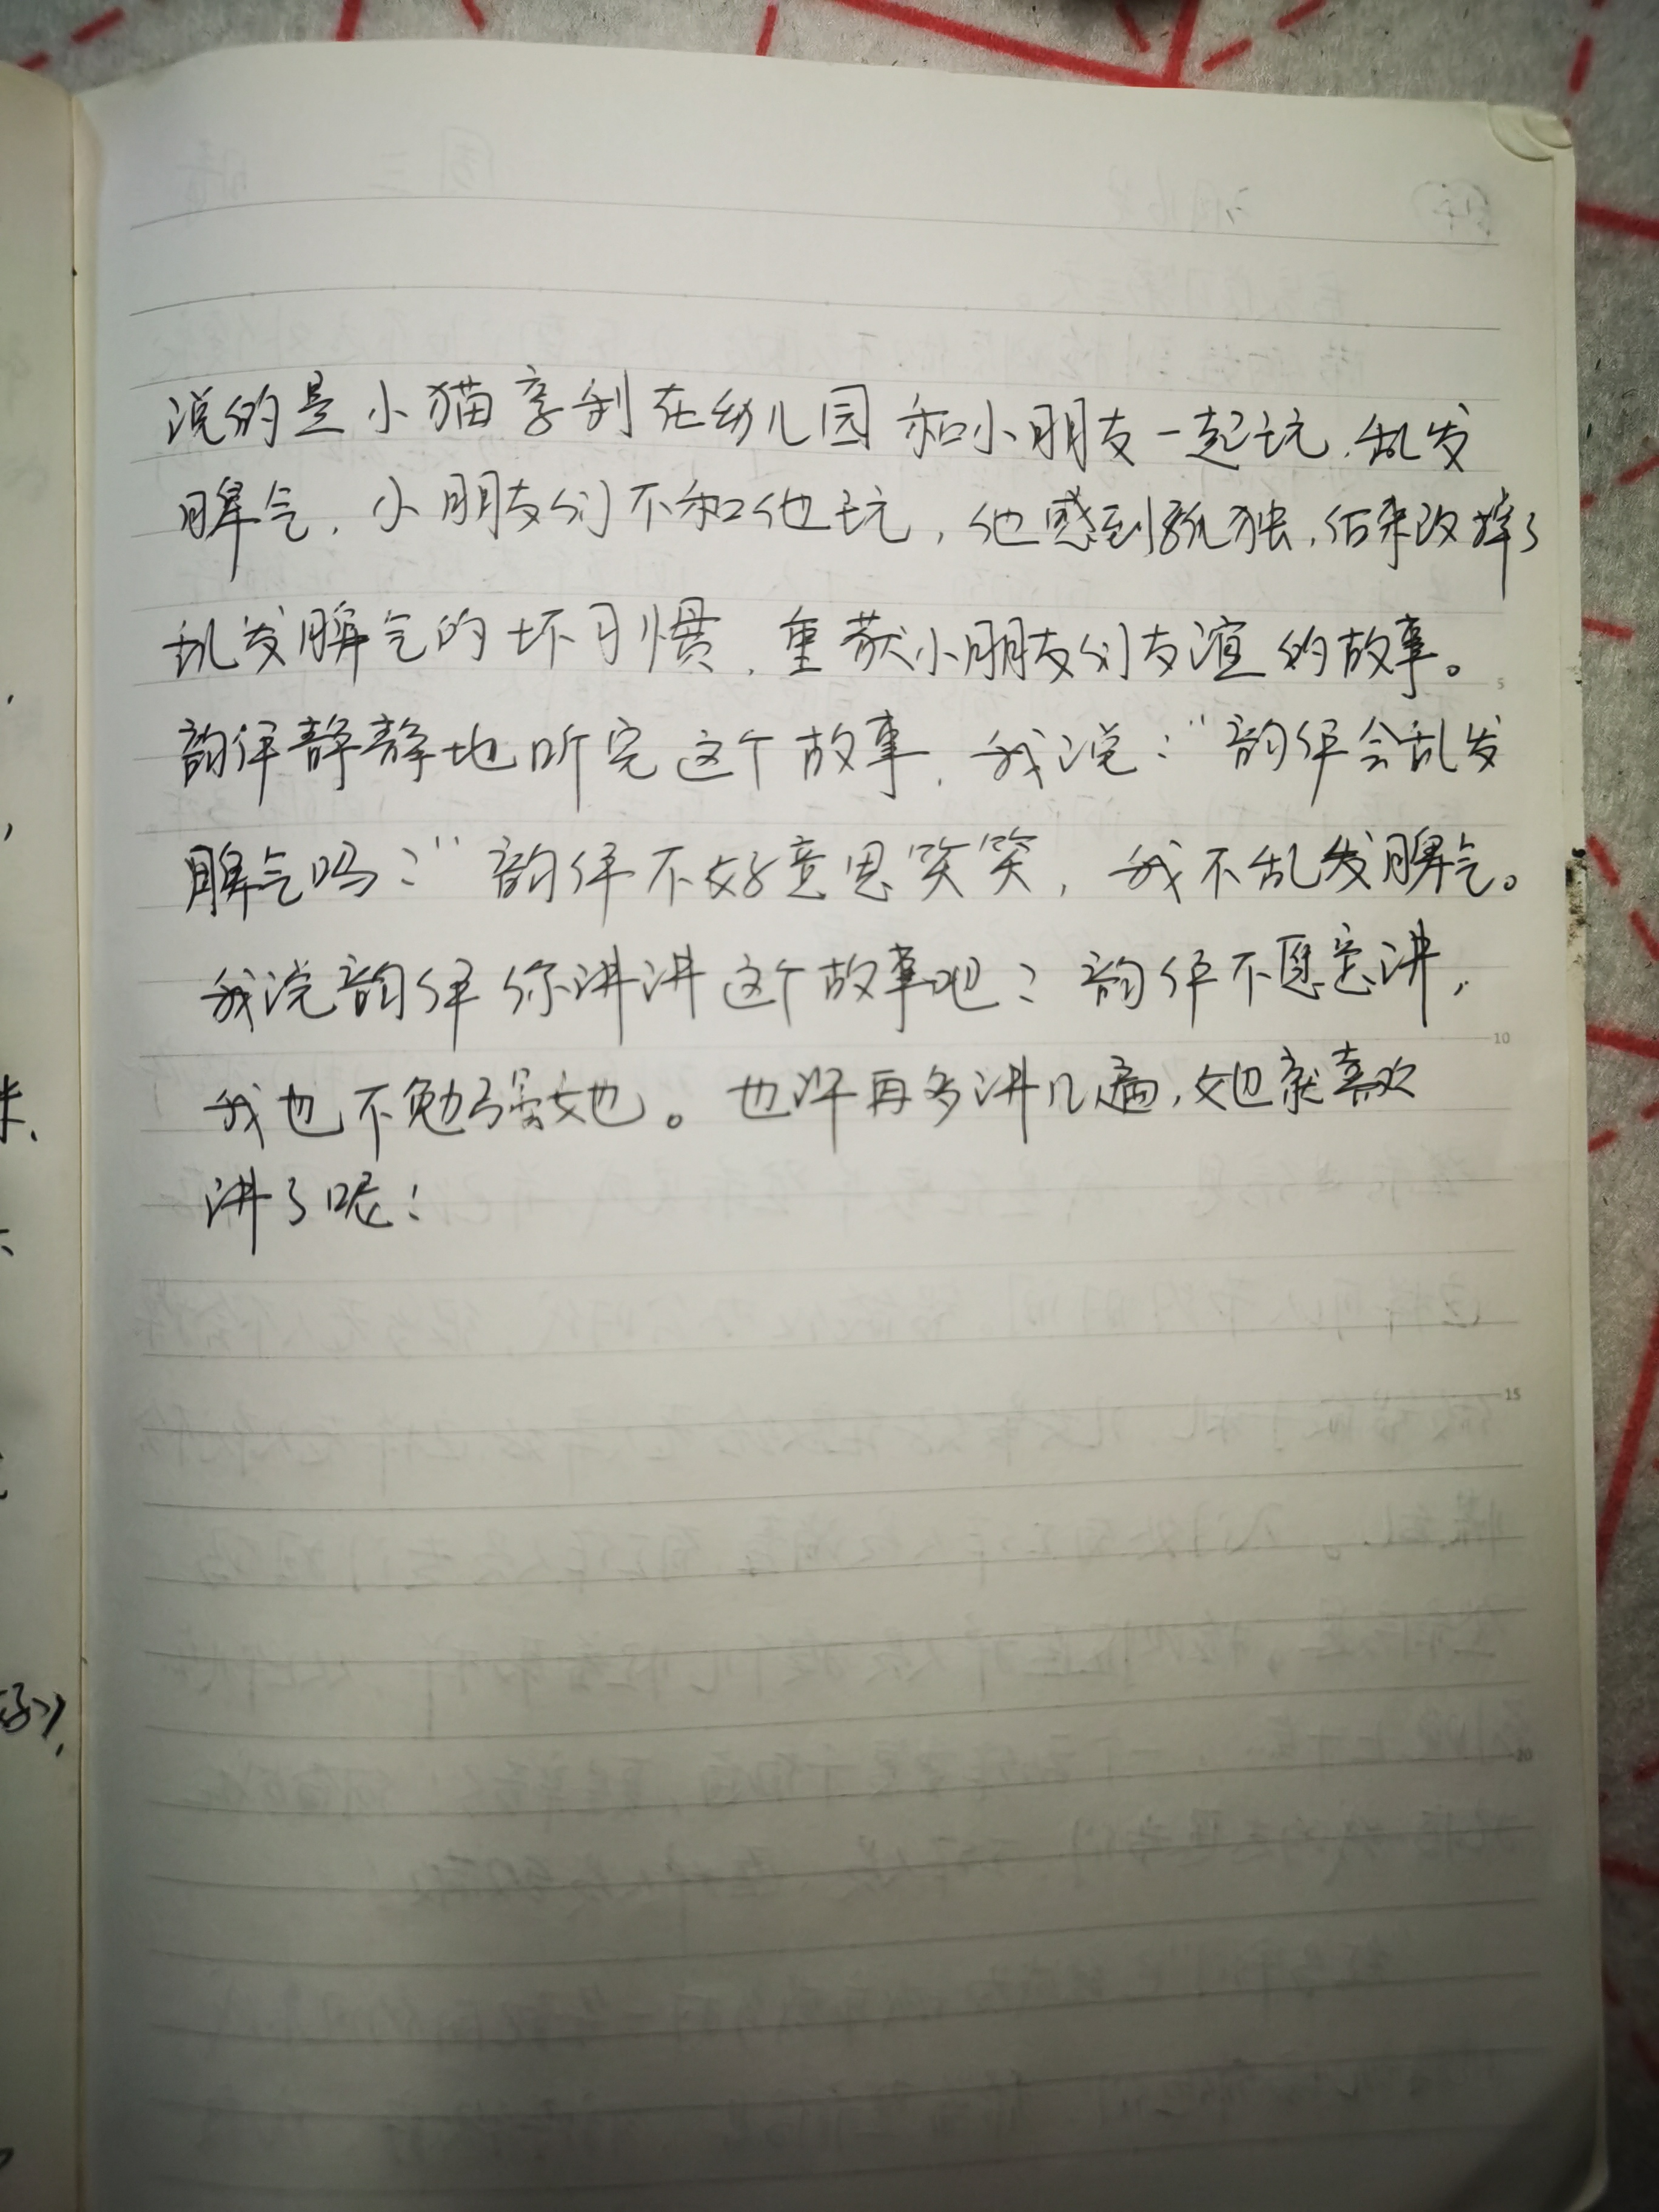 说的是小猫亨利在幼儿园和小朋友一起玩,乱发
脾气,小朋友们不和他玩,他感到孤独,后来改掉了
乱发脾气的坏习惯,重获小朋友们友谊的故事。
韵伊静静地听完这个故事,我说:“韵伊会乱发
脾气吗?”韵伊不好意思笑笑,我不乱发脾气。
我说韵伊你讲讲这个故事吧?韵伊不愿意讲,
我也不勉强她。也许再多讲几遍,她就喜欢
讲了呢!
5
10
15
20